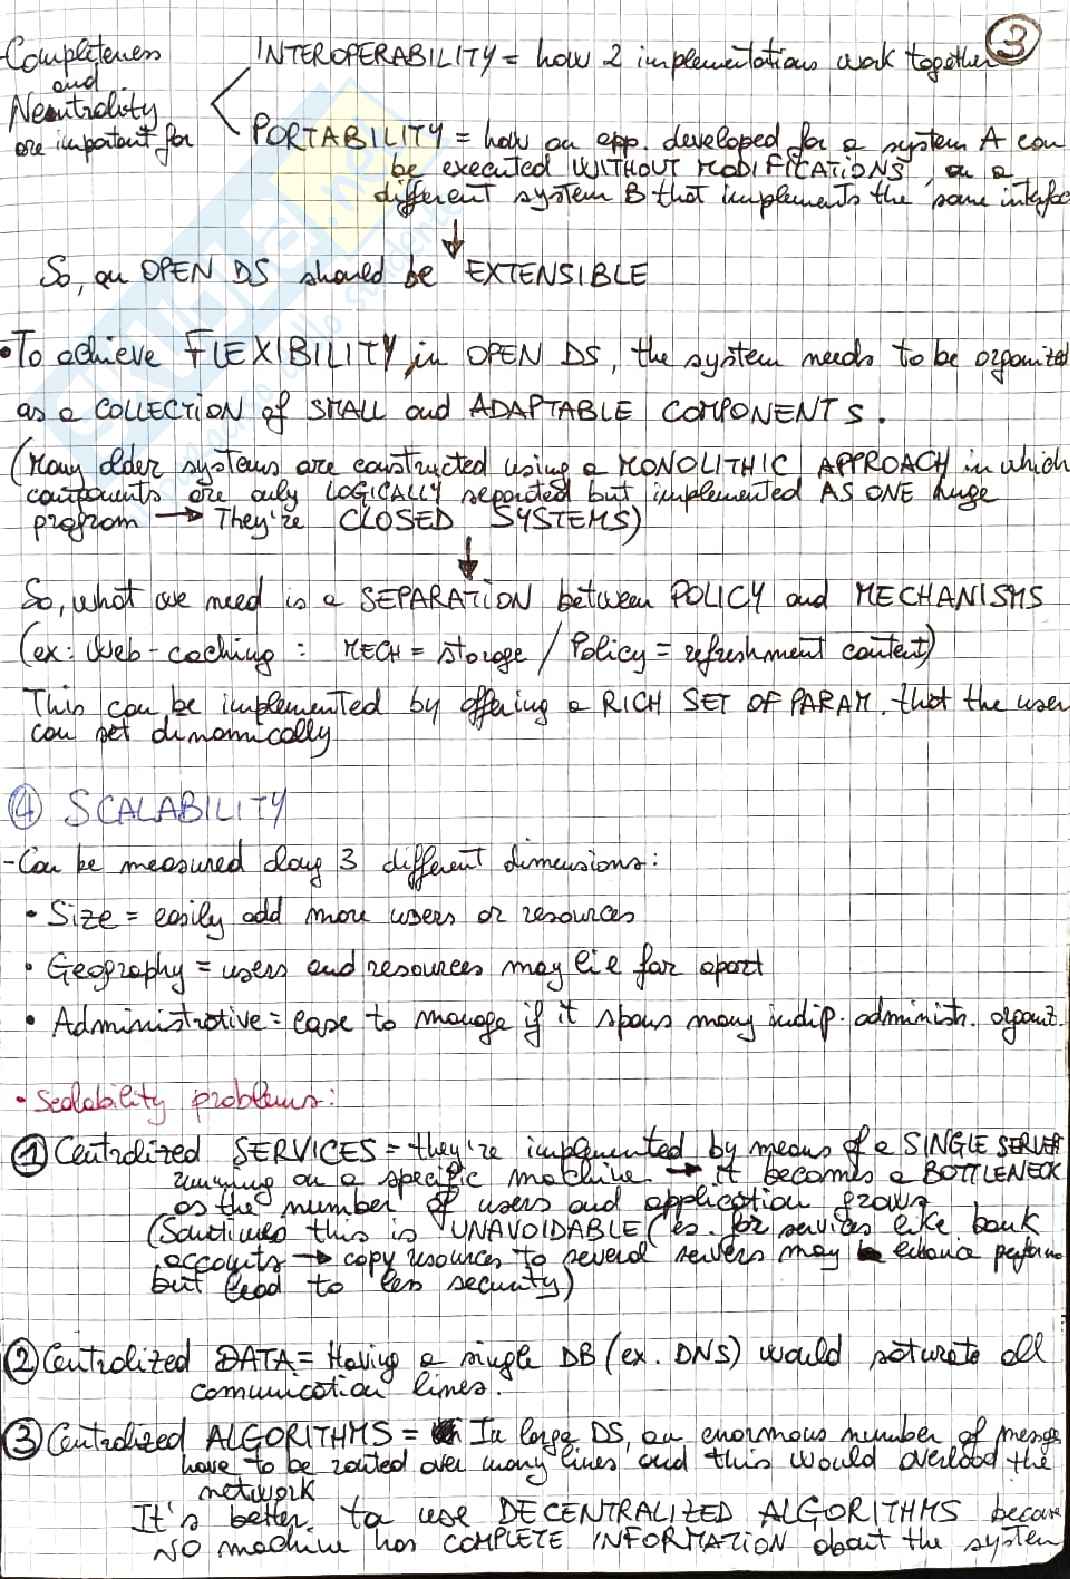 3
Completeness
and
Neutrality
are important for
INTEROPERABILITY = how 2 implementations work together
PORTABILITY = how an app. developed for a system A can
be executed WITHOUT MODIFICATIONS, on a
different system B that implements the same interface
So, an OPEN DS should be EXTENSIBLE
• To achieve FLEXIBILITY in OPEN DS, the system needs to be organized
as a COLLECTION of SMALL and ADAPTABLE COMPONENTS.
(Many older systems are constructed using a MONOLITHIC APPROACH in which
components are only LOGICALLY separated but implemented AS ONE huge
program → They're CLOSED SYSTEMS)
So, what we need is a SEPARATION between POLICY and MECHANISMS
(ex: Web-caching: MECH = storage / Policy = refreshment content)
This can be implemented by offering a RICH SET OF PARAM. that the user
can set dinamically
④ SCALABILITY
- Can be measured along 3 different dimensions:
• Size = easily add more users or resources
• Geography = users and resources may lie far apart
• Administrative = ease to manage if it spans many indip. administr. organiz.
• Scalability problems:
① Centralized SERVICES = they're implemented by means of a SINGLE SERVER
running on a specific machine → it becomes a BOTTLENECK
as the number of users and application grows
(Sometimes this is UNAVOIDABLE (es. for services like bank
accounts → copy resources to several servers may enhance
but lead to less security)
② Centralized DATA = Having a single DB (ex. DNS) would saturate all
comunication lines.
③ Centralized ALGORITHMS = In large DS, an enormous number of
have to be routed over many lines and this would overload the
network
It's better to use DECENTRALIZED ALGORITHMS because
NO machine has COMPLETE INFORMATION about the system